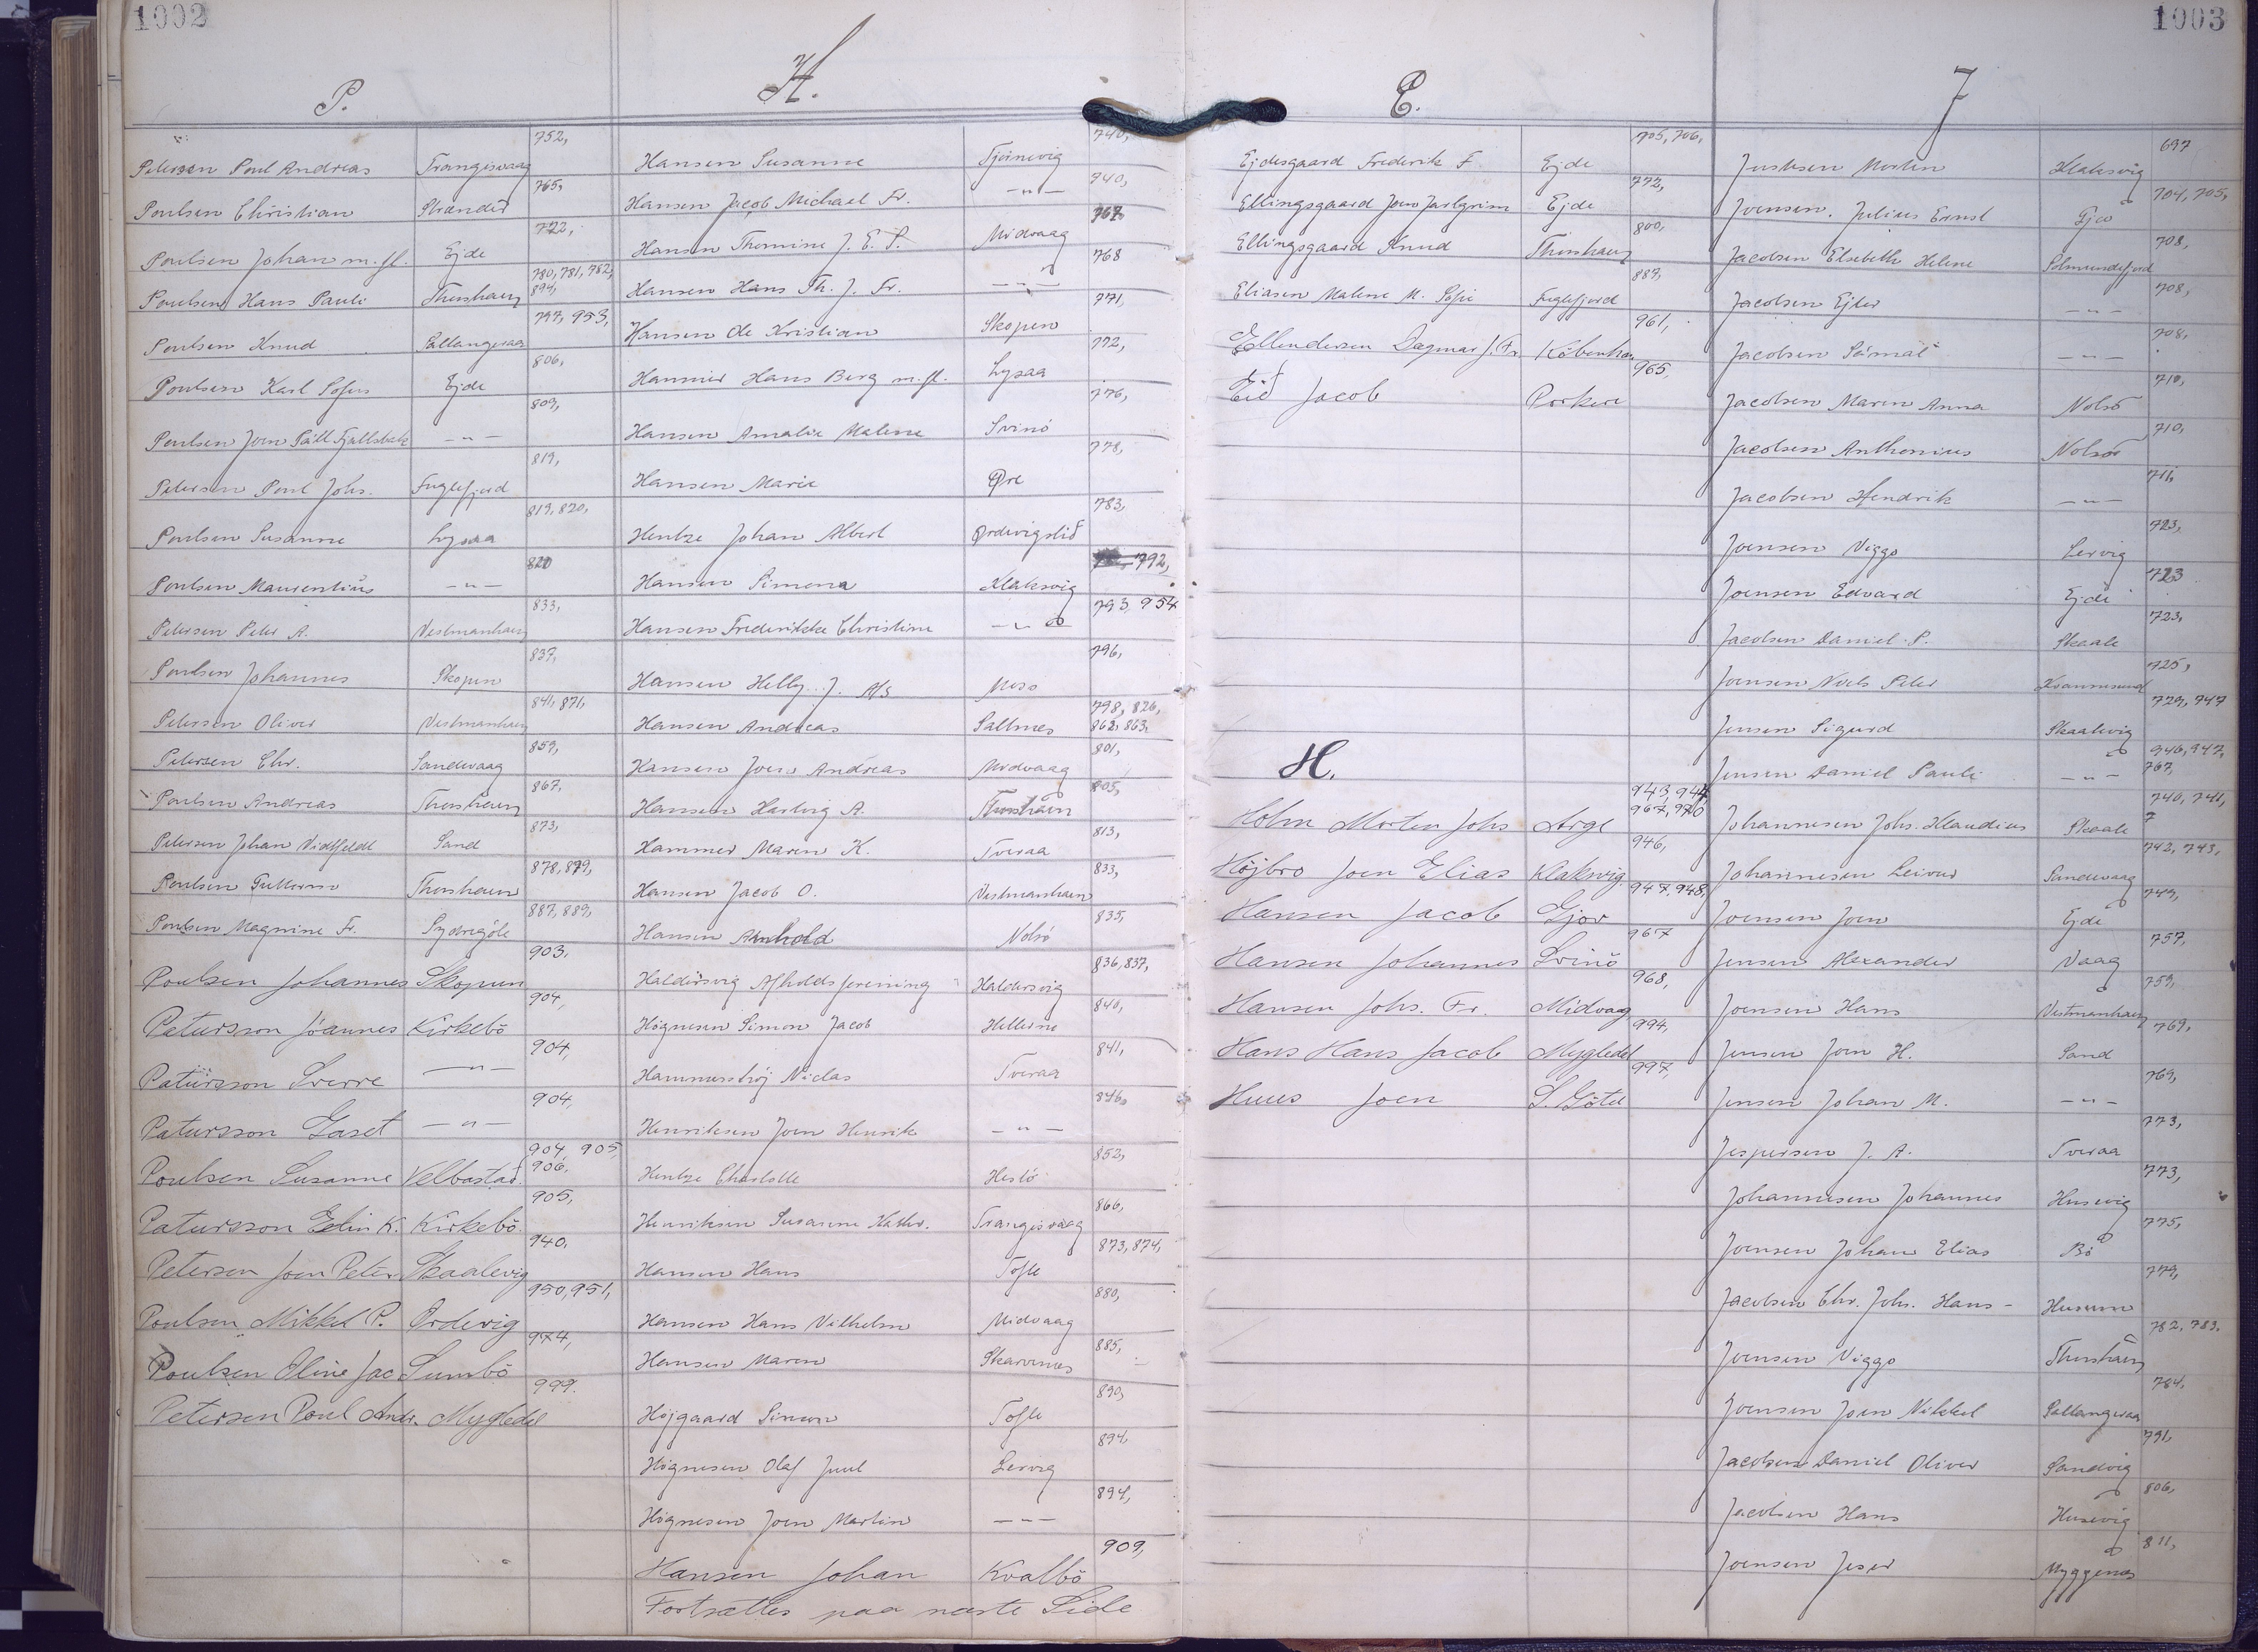 1002
P.
752,
Petersen Poul Andreas Trangisvaag
765,
Poulsen Christian Strænder
722,
Poulsen Johan m.fl. Ejde
780, 781, 782,
894,
Poulsen Hans Pauli Thorshavn
797, 953,
Poulsen Knud Sattangeraa
806,
Poulsen Karl Sofus Ejde
809,
Poulsen Joen Páll — " —
819,
Petersen Poul Johs. Fuglefjord
819, 820,
Poulsen Susanne Lysaa
820
Poulsen Maurentius — " —
833,
Petersen Peter A. Vestmanhavn
837,
Poulsen Johannes Skopen
841, 871,
Petersen Oliver Vestmanhavn
859,
Petersen Chr. Sandevaag
867,
Poulsen Andreas Thorshavn
873,
Petersen Johan Sand
878, 879,
Poulsen Guttorm Thorshavn
887, 889,
Poulsen Magnine Fr. Sydregöte
903,
Poulsen Johannes Skopun
904,
Patursson Jóannes Kirkebö
904,
Patursson Sverre — " —
904,
Patursson Gaset — " —
904, 905,
906,
Poulsen Susanne Velbastad.
905,
Patursson Eelin K. Kirkebö.
940,
Petersen Joen Peter Skaalevig
950, 951,
Poulsen Mikkel P. Ordevig
974,
Poulsen Oline Jac Sumbö
999.
Petersen Poul Andr. Mygledal
H.
740,
Hansen Susanne Tjörnevig
740,
Hansen Jacob Michael Fr. — " —
767,
Hansen Thomine J. E. S. Midvaag
768
Hansen Hans Th. J. Fr. — " —
771,
Hansen Ole Kristian Skopen
772,
Hammer Hans Berg m.fl. Lysaa
776,
Hansen Amalie Malene Svinö
778,
Hansen Marie Øre
783,
Hentze Johan Albert Ordevigslid
792,
Hansen Simona Klaksvig
793, 954
Hansen Frederikke Christine — " —
796,
Hansen Helly J. A/S Næs
798, 826,
862, 863,
Hansen Andreas Saltnes
801,
Hansen Joen Andreas Midvaag
805,
Hansen Hartvig A. Thorshavn
813,
Hammer Maren K. Tveraa
833,
Hansen Jacob O. Vestmanhavn
835,
Hansen Arnhold Nolsö
836, 837,
Haldersvig Afholdsforening Haldersvig
840,
Högnesen Simon Jacob Hellerne
841,
Hammershöj Niclas Tveraa
846,
Henriksen Joen Henrik — " —
852,
Hentze Charlotte Hestö
866,
Henriksen Susanne Kathr. Trangisvaag
873, 874,
Hansen Hans Tofte
880,
Hansen Hans Vilhelm Midvaag
885,
Hansen Maren Skarvenes
890,
Höjgaard Simon Tofte
894,
Högnesen Olaf Juul Lervig
894,
Högnesen Joen Martin — " —
909,
Hansen Johan Kvalbö
Fortsættes paa næste Side
1003
E.
705, 706,
Ejdesgaard Frederik F. Ejde
772,
Ellingsgaard Joen Ejde
800,
Ellingsgaard Knud Thorshavn
887,
Eliasen Malene M. Sofie Fuglefjord
961,
Ellendersen Dagmar J. Fr. Köbenhavn
965,
Eið Jacob Porkere
H.
943, 944
967, 970
Holm Morten Johs Arge
946,
Højbro Joen Elias Klaksvig.
947, 948,
Hansen Jacob Gjov
967
Hansen Johannes Svinö
968,
Hansen Johs. Fr. Midvag
994,
Hans Hans Jacob Mygledal
997,
Huus Joen S. Göte
J
697
Justesen Morten Klaksvig
704, 705,
Joensen, Julius Ernst Gjov
708,
Jacobsen Elsebeth Helene Selmundefjord
708,
Jacobsen Ejler — " —
708,
Jacobsen Sámal — " —
710,
Jacobsen Maren Anna Nolsö
710,
Jacobsen Anthonius Nolsö
711,
Jacobsen Hendrik — " —
723,
Joensen Viggo Lervig
723
Joensen Edvard Ejde
723,
Jacobsen Daniel P. Skaale
725,
Joensen Niels Peter Kvannesund
729, 747
Jensen Sigurd Skaalevig
946, 947,
767,
Jensen Daniel Pauli — " —
740, 741,
7
Johannesen Johs. Klaudius Skaale
742, 743,
Johannesen Leivur Sandevaag
749,
Joensen Joen Ejde
757,
Jensen Alexander Vaag
759,
Joensen Hans Vestmanhavn
769,
Jensen Joen H. Sand
769,
Jensen Johan M. — " —
773,
Jespersen J. A. Tveraa
773,
Johannesen Johannes Husevig
775,
Joensen Johan Elias Bö
779,
Jacobsen Chr. Johs. Hans - Husum
782, 783,
Joensen Viggo Thorshavn
784,
Joensen Joen Mikkel Sattangeraa
791,
Jacobsen Daniel Oliver Sandvig
806,
Jacobsen Hans Husevig
811,
Joensen Jeser Myggenæs